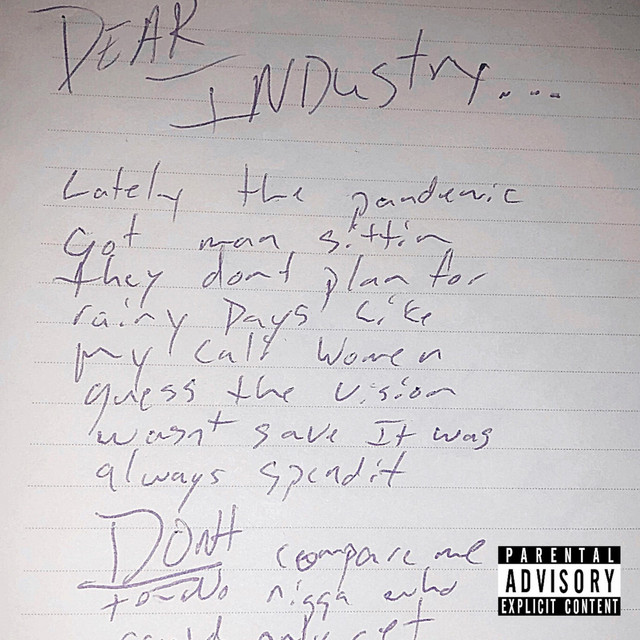 DEAR
INDustry....
Lately the pandemic
Got man sittin
they dont plan for
rainy Days Like
my Cali Women
guess the vision
wasnt save It was
always spendit
DONt compare me
to no nigga who
could only get
PARENTAL
ADVISORY
EXPLICIT CONTENT